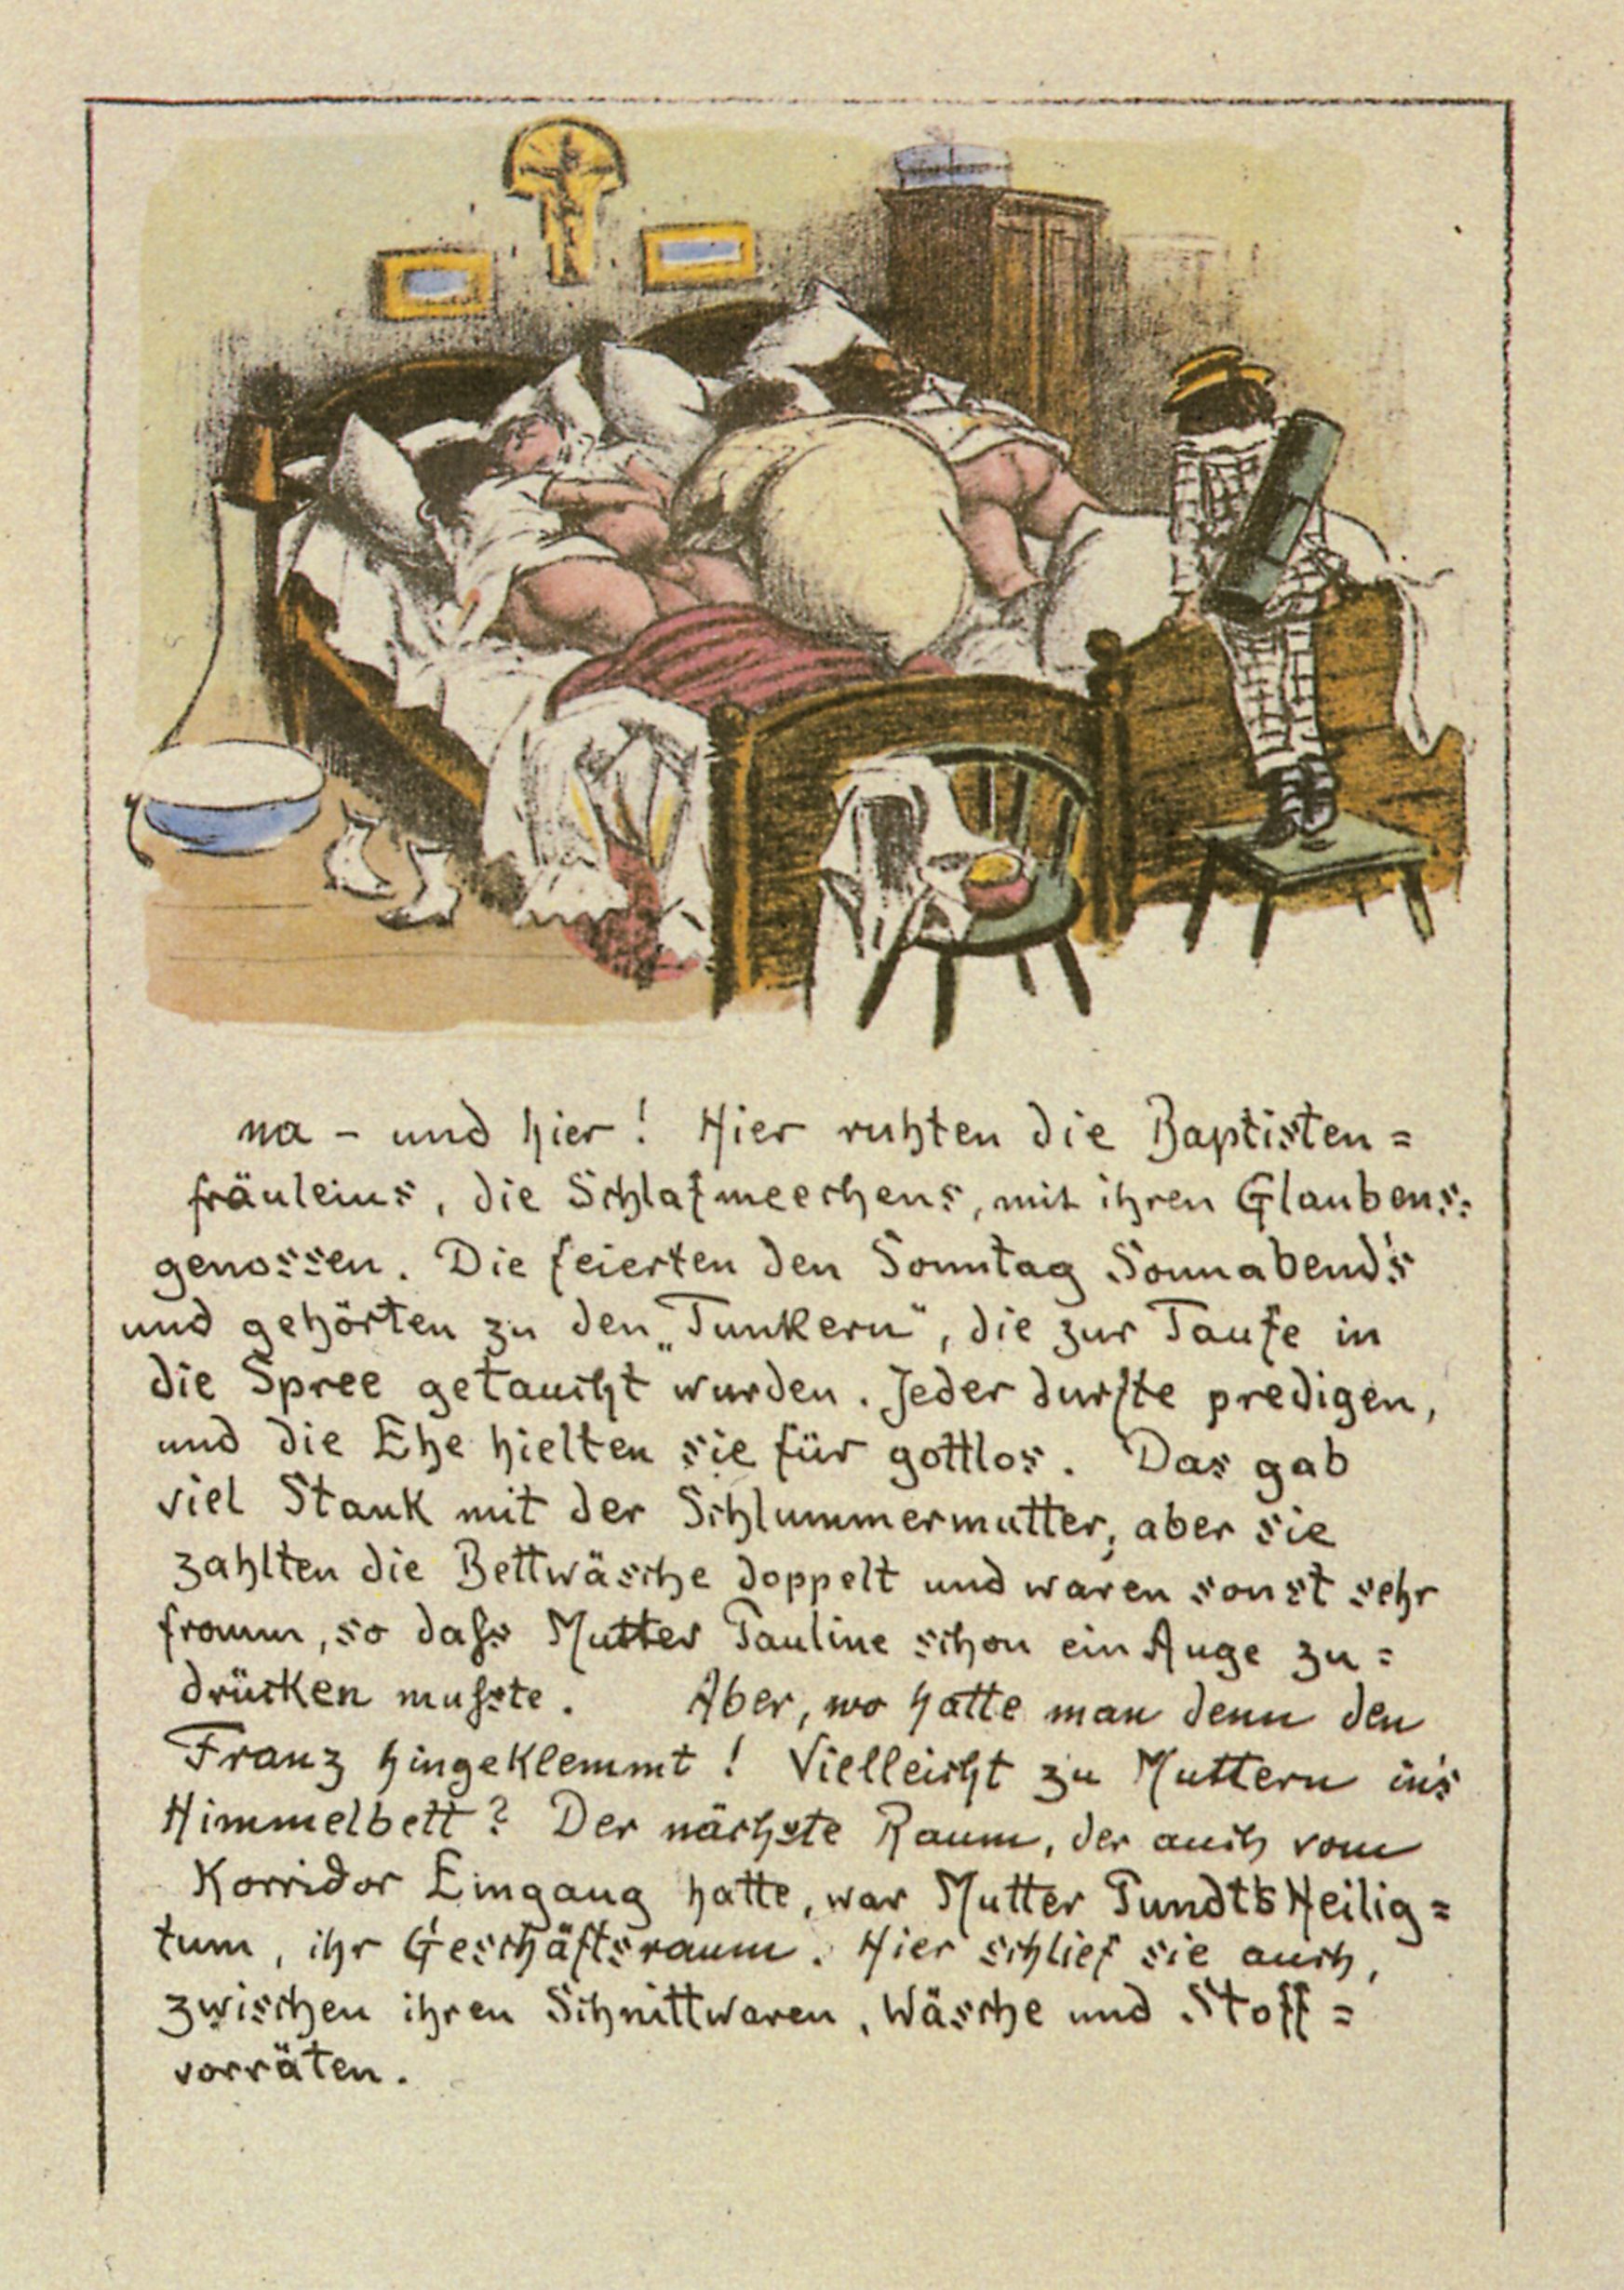 na - und hier! Hier ruhten die Baptisten=
fräuleins, die Schlafmeechens, mit ihren Glaubens=
genossen. Die feierten den Sonntag Sonnabend's
und gehörten zu den „Tunkern", die zur Taufe in
die Spree getaucht wurden. Jeder durfte predigen,
und die Ehe hielten sie für gottlos. Das gab
viel Stank mit der Schlummermutter, aber sie
zahlten die Bettwäsche doppelt und waren sonst sehr
fromm, so dass Mutter Pauline schon ein Auge zu=
drücken musste. Aber, wo hatte man denn den
Franz hingeklemmt! Vielleicht zu Muttern in's
Himmelbett? Der nächste Raum, der auch vom
Korridor Eingang hatte, war Mutter Pundt's Heilig=
tum, ihr Geschäftsraum. Hier schlief sie auch,
zwischen ihren Schnittwaren, Wäsche und Stoff=
vorräten.